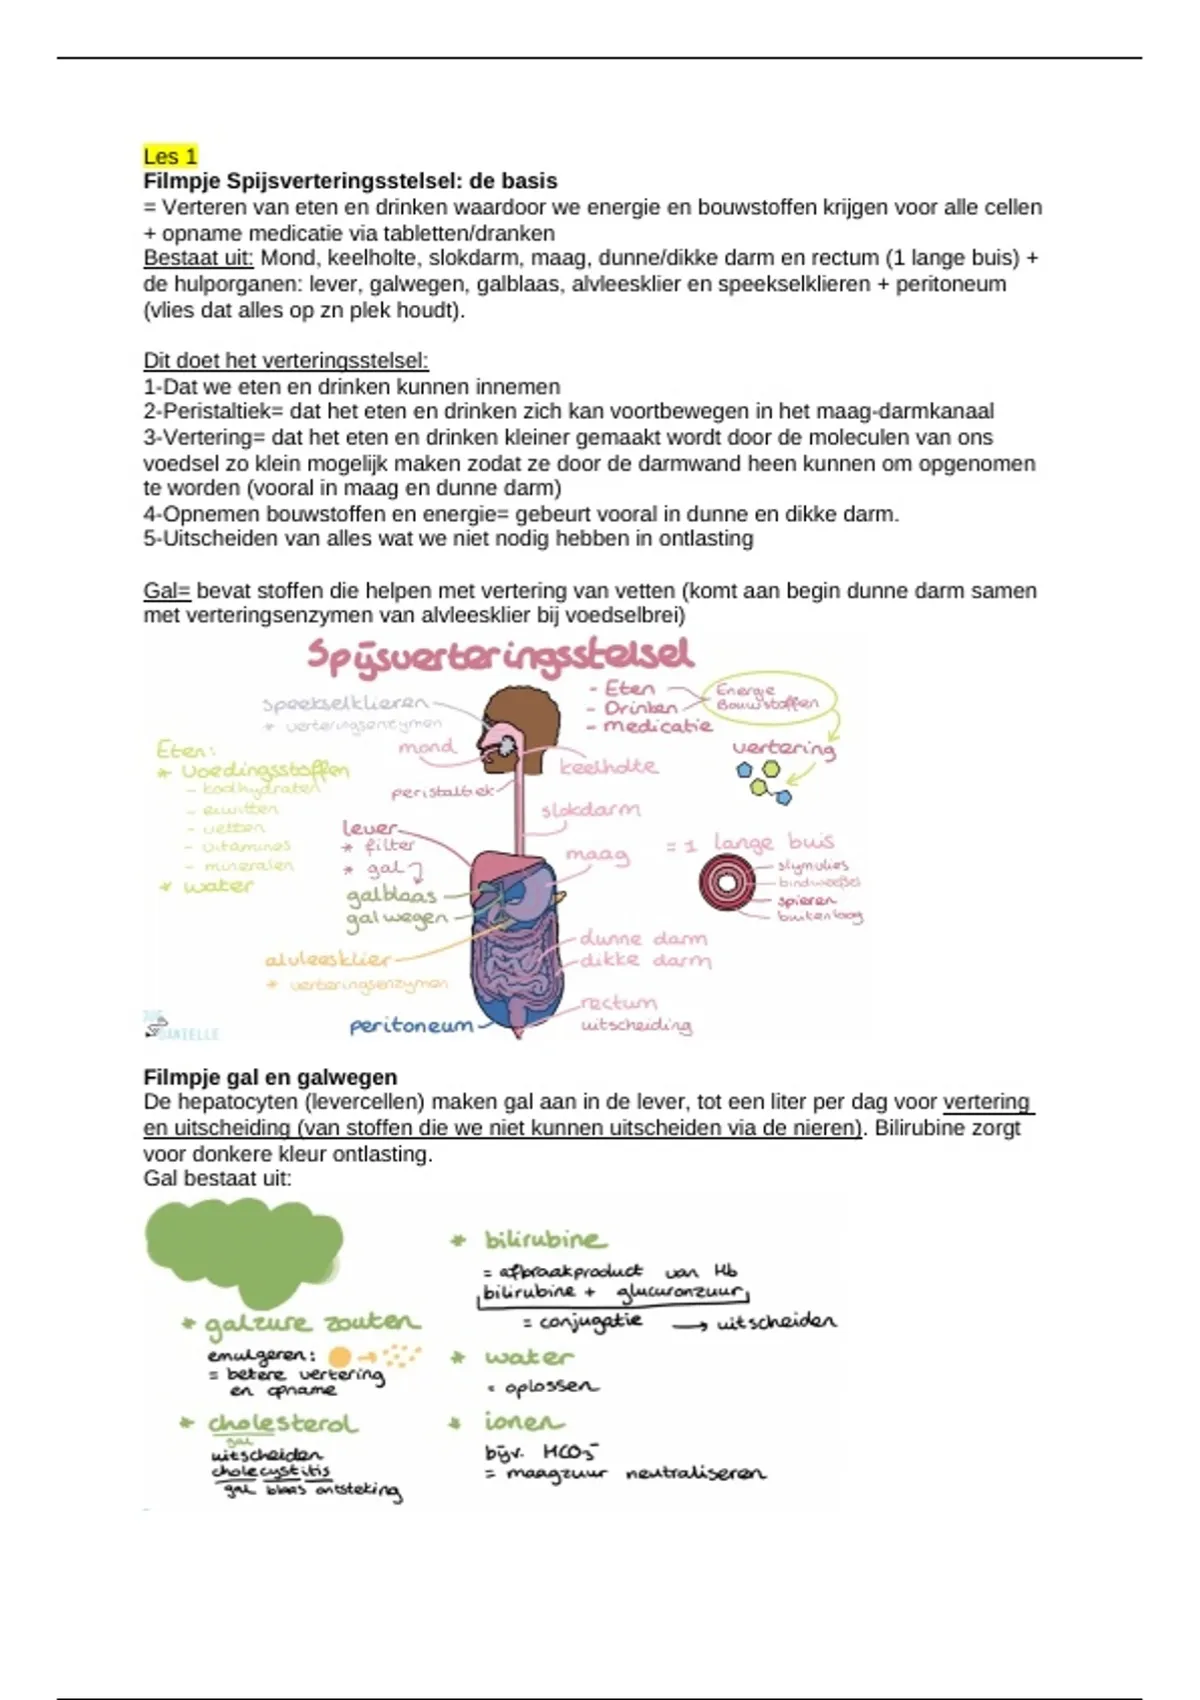 Les 1
Filmpje Spijsverteringsstelsel: de basis
= Verteren van eten en drinken waardoor we energie en bouwstoffen krijgen voor alle cellen
+ opname medicatie via tabletten/dranken
Bestaat uit: Mond, keelholte, slokdarm, maag, dunne/dikke darm en rectum (1 lange buis) +
de hulporganen: lever, galwegen, galblaas, alvleesklier en speekselklieren + peritoneum
(vlies dat alles op zn plek houdt).
Dit doet het verteringsstelsel:
1-Dat we eten en drinken kunnen innemen
2-Peristaltiek= dat het eten en drinken zich kan voortbewegen in het maag-darmkanaal
3-Vertering= dat het eten en drinken kleiner gemaakt wordt door de moleculen van ons
voedsel zo klein mogelijk maken zodat ze door de darmwand heen kunnen om opgenomen
te worden (vooral in maag en dunne darm)
4-Opnemen bouwstoffen en energie= gebeurt vooral in dunne en dikke darm.
5-Uitscheiden van alles wat we niet nodig hebben in ontlasting
Gal= bevat stoffen die helpen met vertering van vetten (komt aan begin dunne darm samen
met verteringsenzymen van alvleesklier bij voedselbrei)
Spijsverteringsstelsel
speekselklieren
* verteringsenzymen
mond
peristaltiek
- Eten
- Drinken
- medicatie
Energie
Bouwstoffen
vertering
keelholte
slokdarm
maag
Eten:
* voedingsstoffen
- koolhydraten
- eiwitten
- vetten
- vitamines
- mineralen
* water
lever
* filter
* gal
galblaas
galwegen
alvleesklier
* verteringsenzymen
peritoneum
= 1 lange buis
slijmvlies
bindweefsel
spieren
buitenlaag
dunne darm
dikke darm
rectum
uitscheiding
DANIELLE
Filmpje gal en galwegen
De hepatocyten (levercellen) maken gal aan in de lever, tot een liter per dag voor vertering
en uitscheiding (van stoffen die we niet kunnen uitscheiden via de nieren). Bilirubine zorgt
voor donkere kleur ontlasting.
Gal bestaat uit:
* galzure zouten
emulgeren:
= betere vertering
en opname
* cholesterol
gal
uitscheiden
cholecystitis
gal blaas ontsteking
* bilirubine
= afbraakproduct van Hb
bilirubine + glucuronzuur
= conjugatie → uitscheiden
* water
= oplossen
* ionen
bijv. HCO3-
= maagzuur neutraliseren